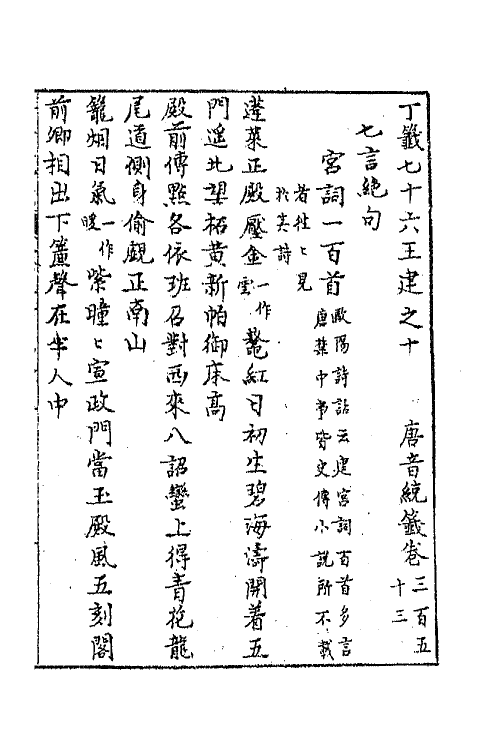 丁籖七十六王建之十　唐音統籖卷三百五十三
七言絶句
宮詞一百首歐陽詩話云建宮詞百首多言唐禁中事皆史傳小說所不載
者往〻見於其詩
蓬萊正殿壓金一作雲鼇紅日初生碧海濤開着五
門遥北望柘黄新帕御床高
殿前傳點各依班召對西來八詔蠻上得青花龍
尾道側身偷覷正南山
籠烟日氣一作暖紫曈〻宣政門當玉殿風五刻閣
前卿相出下簾聲在半人中